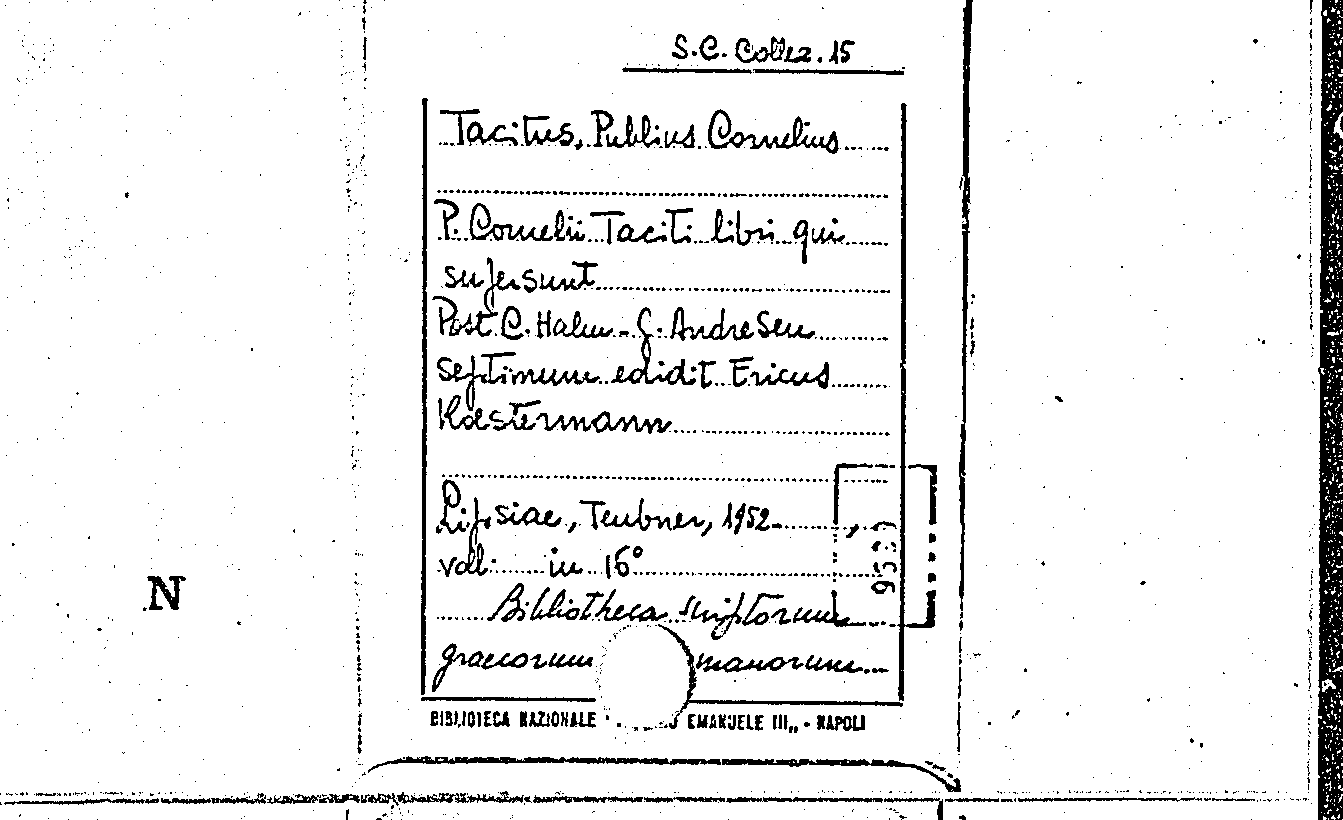 S.C. Collez. 15
Tacitus, Publius Cornelius
P. Cornelii Taciti libri qui
supersunt
Post C. Halm - G. Andresen
septimum edidit Ericus
Koestermann
Lipsiae, Teubner, 1952-
voll. in 16°
Bibliotheca scriptorum
graecorum manorum
BIBLIOTECA NAZIONALE EMANUELE III„ - NAPOLI
N